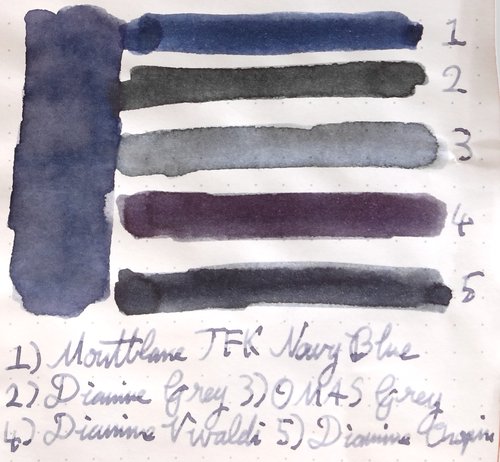 1
2
3
4
5
1) Montblanc JFK Navy Blue
2) Diamine Grey 3) OMAS Grey
4) Diamine Vivaldi 5) Diamine Chopin